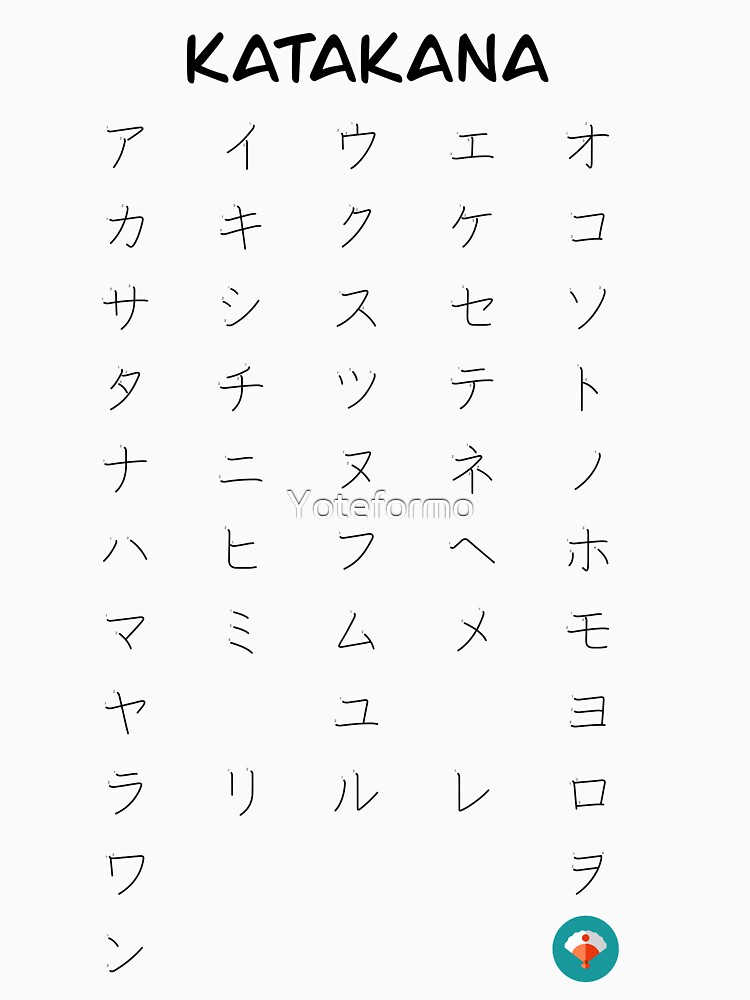 KATAKANA
ア イ ウ エ オ
カ キ ク ケ コ
サ シ ス セ ソ
タ チ ツ テ ト
ナ ニ ヌ ネ ノ
Yoteformo
ハ ヒ フ ヘ ホ
マ ミ ム メ モ
ヤ ユ ヨ
ラ リ ル レ ロ
ワ ヲ
ン